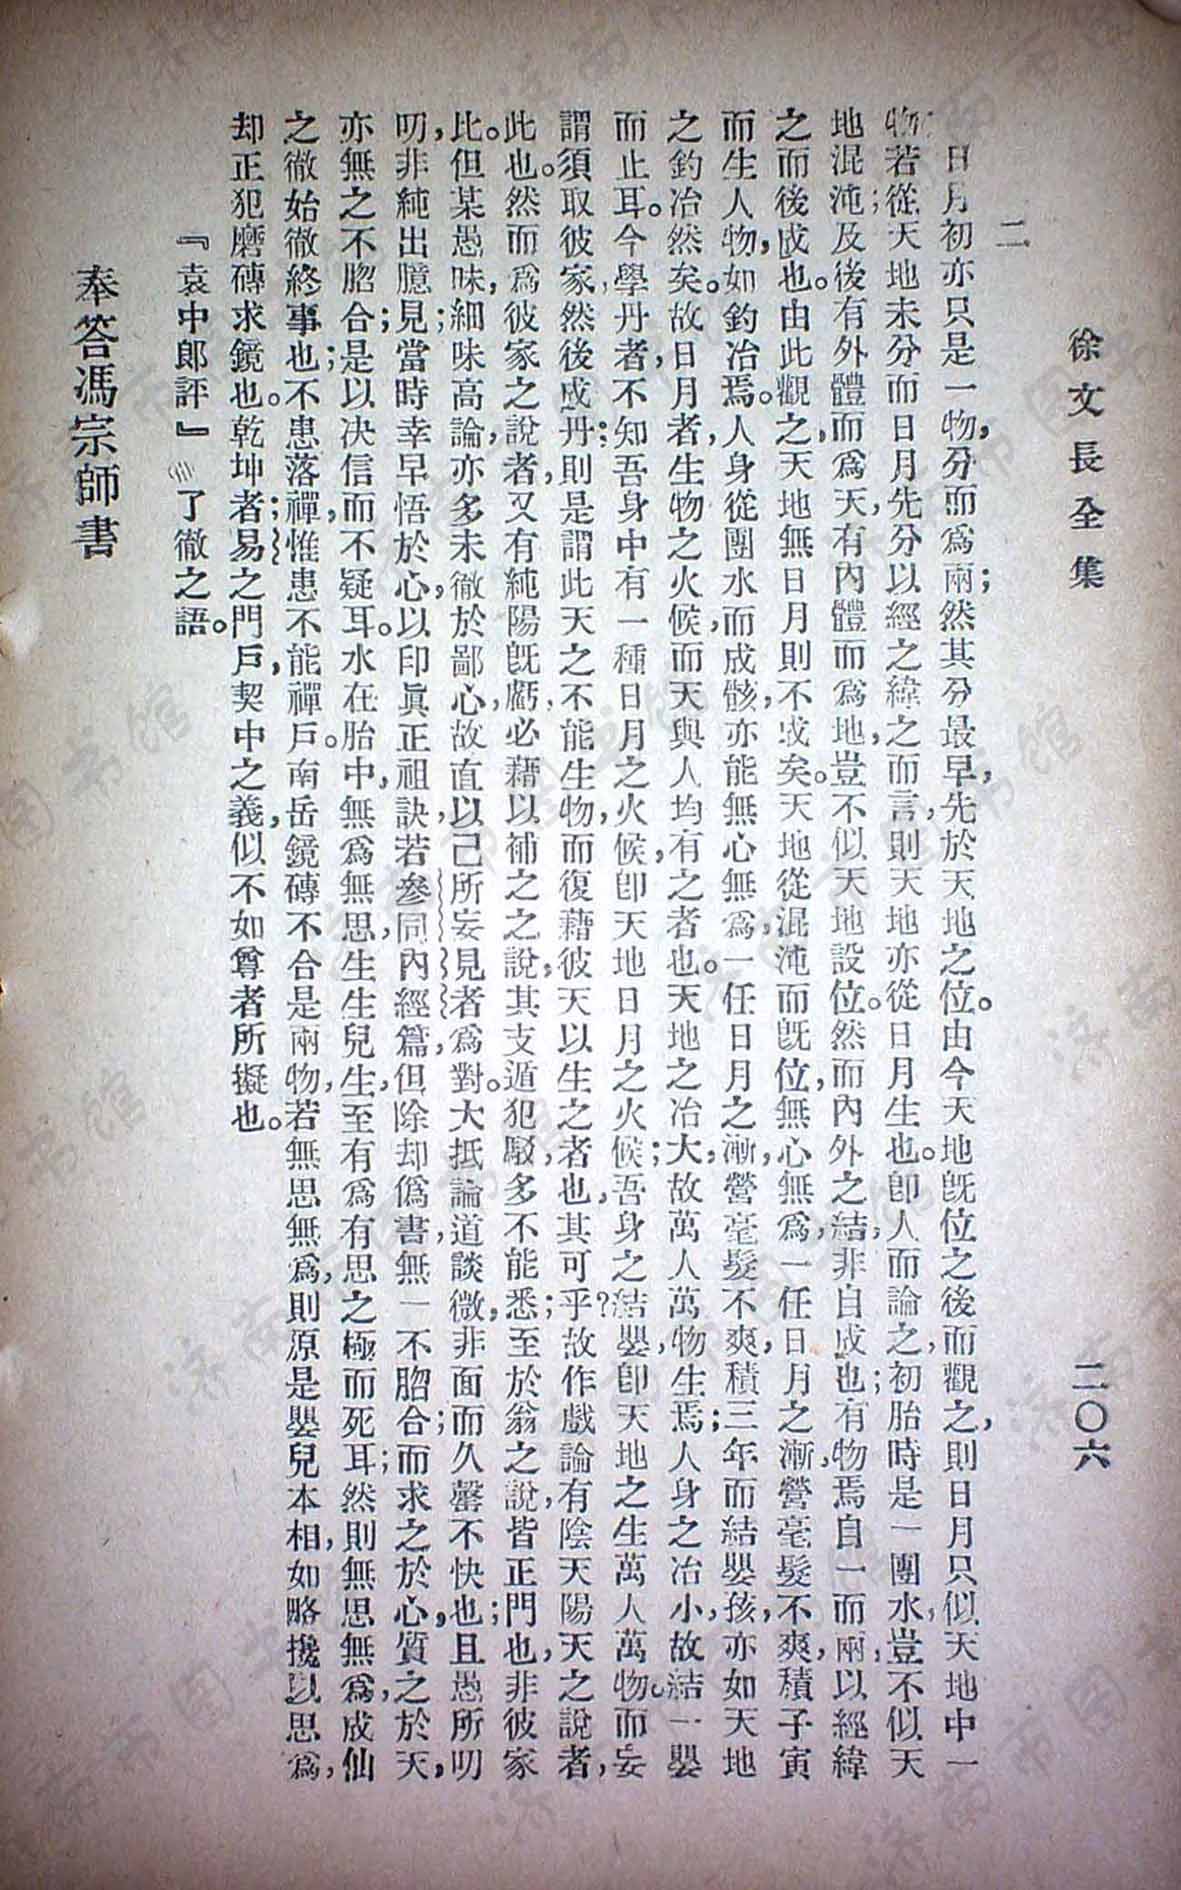 徐文長全集
二〇六
二
日月初亦只是一物，分而爲兩；然其分最早，先於天地之位。由今天地既位之後而觀之，則日月只似天地中一
物；若從天地未分而日月先分，以經之緯之而言，則天地亦從日月生也。卽人而論之，初胎時是一團水，豈不似天
地混沌；及後有外體而爲天，有內體而爲地，豈不似天地設位。然而內外之結，非自成也；有物焉，自一而兩，以經緯
之而後成也。由此觀之，天地無日月則不成矣。天地從混沌而既位，無心無爲，一任日月之漸，營毫髮不爽，積子寅
而生人物，如鈞冶焉。人身從團水而成骸，亦能無心無爲，一任日月之漸，營毫髮不爽，積三年而結嬰孩，亦如天地
之鈞冶然矣。故日月者，生物之火候，而天與人均有之者也。天地之冶大，故萬人萬物生焉；人身之冶小，故結一嬰
而止耳。今學丹者，不知吾身中有一種日月之火候，卽天地日月之火候；吾身之結嬰，卽天地之生萬人萬物。而妄
謂須取彼家，然後成丹；則是謂此天之不能生物，而復藉彼天以生之者也，其可乎？故作戲論，有陰天陽天之說者，
此也。然而爲彼家之說者，又有純陽既虧，必藉以補之之說，其支遁犯駁，多不能悉；至於翁之說，皆正門也，非彼家
比。但某愚味，細味高論，亦多未徹於鄙心，故直以己所妄見者爲對。大抵論道談微，非面而久罄不快也；且愚所叨
叨，非純出臆見；當時幸早悟於心，以印眞正祖訣，若參同內經篇，但除却僞書，無一不脗合；而求之於心，質之於天，
亦無之不脗合；是以决信而不疑耳。水在胎中，無爲無思，生生兒生，至有爲有思之極而死耳；然則無思無爲，成仙
之徹始徹終事也；不患落禪，惟患不能禪戶。南岳鏡磚不合是兩物，若無思無爲，則原是嬰兒本相，如略攙以思爲，
却正犯磨磚求鏡也。乾坤者，易之門戶，契中之義，似不如尊者所擬也。
『袁中郎評』了徹之語。
奉答馮宗師書